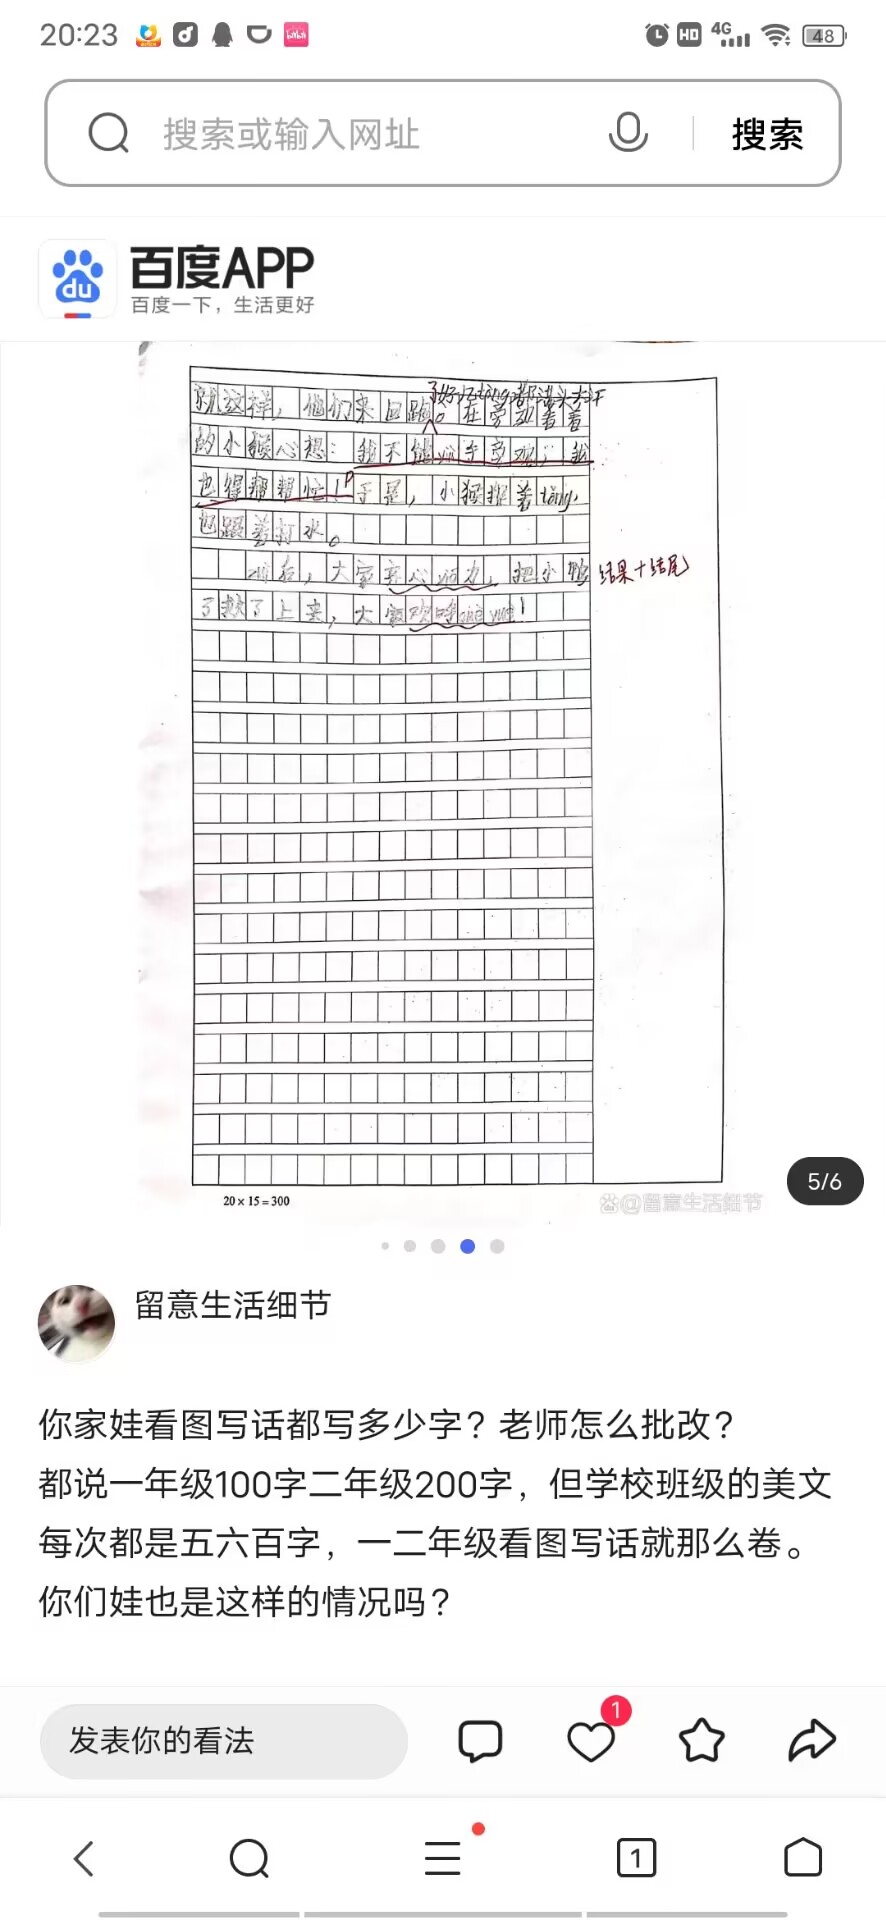 20:23
HD 4G 48
搜索或输入网址 搜索
du 百度APP
百度一下，生活更好
就这样，他们来回跑。在旁边看着
的小猴心想：我不能xiù手旁观，我
也得帮帮忙！于是，小猴提着tǒng，
也跟着打水。
大家齐心协力，把小鸭 结果+结尾
了救了上来，大家欢呼què yuè！
20×15=300
@留意生活细节
5/6
留意生活细节
你家娃看图写话都写多少字？老师怎么批改？
都说一年级100字二年级200字，但学校班级的美文
每次都是五六百字，一二年级看图写话就那么卷。
你们娃也是这样的情况吗？
发表你的看法 1
1